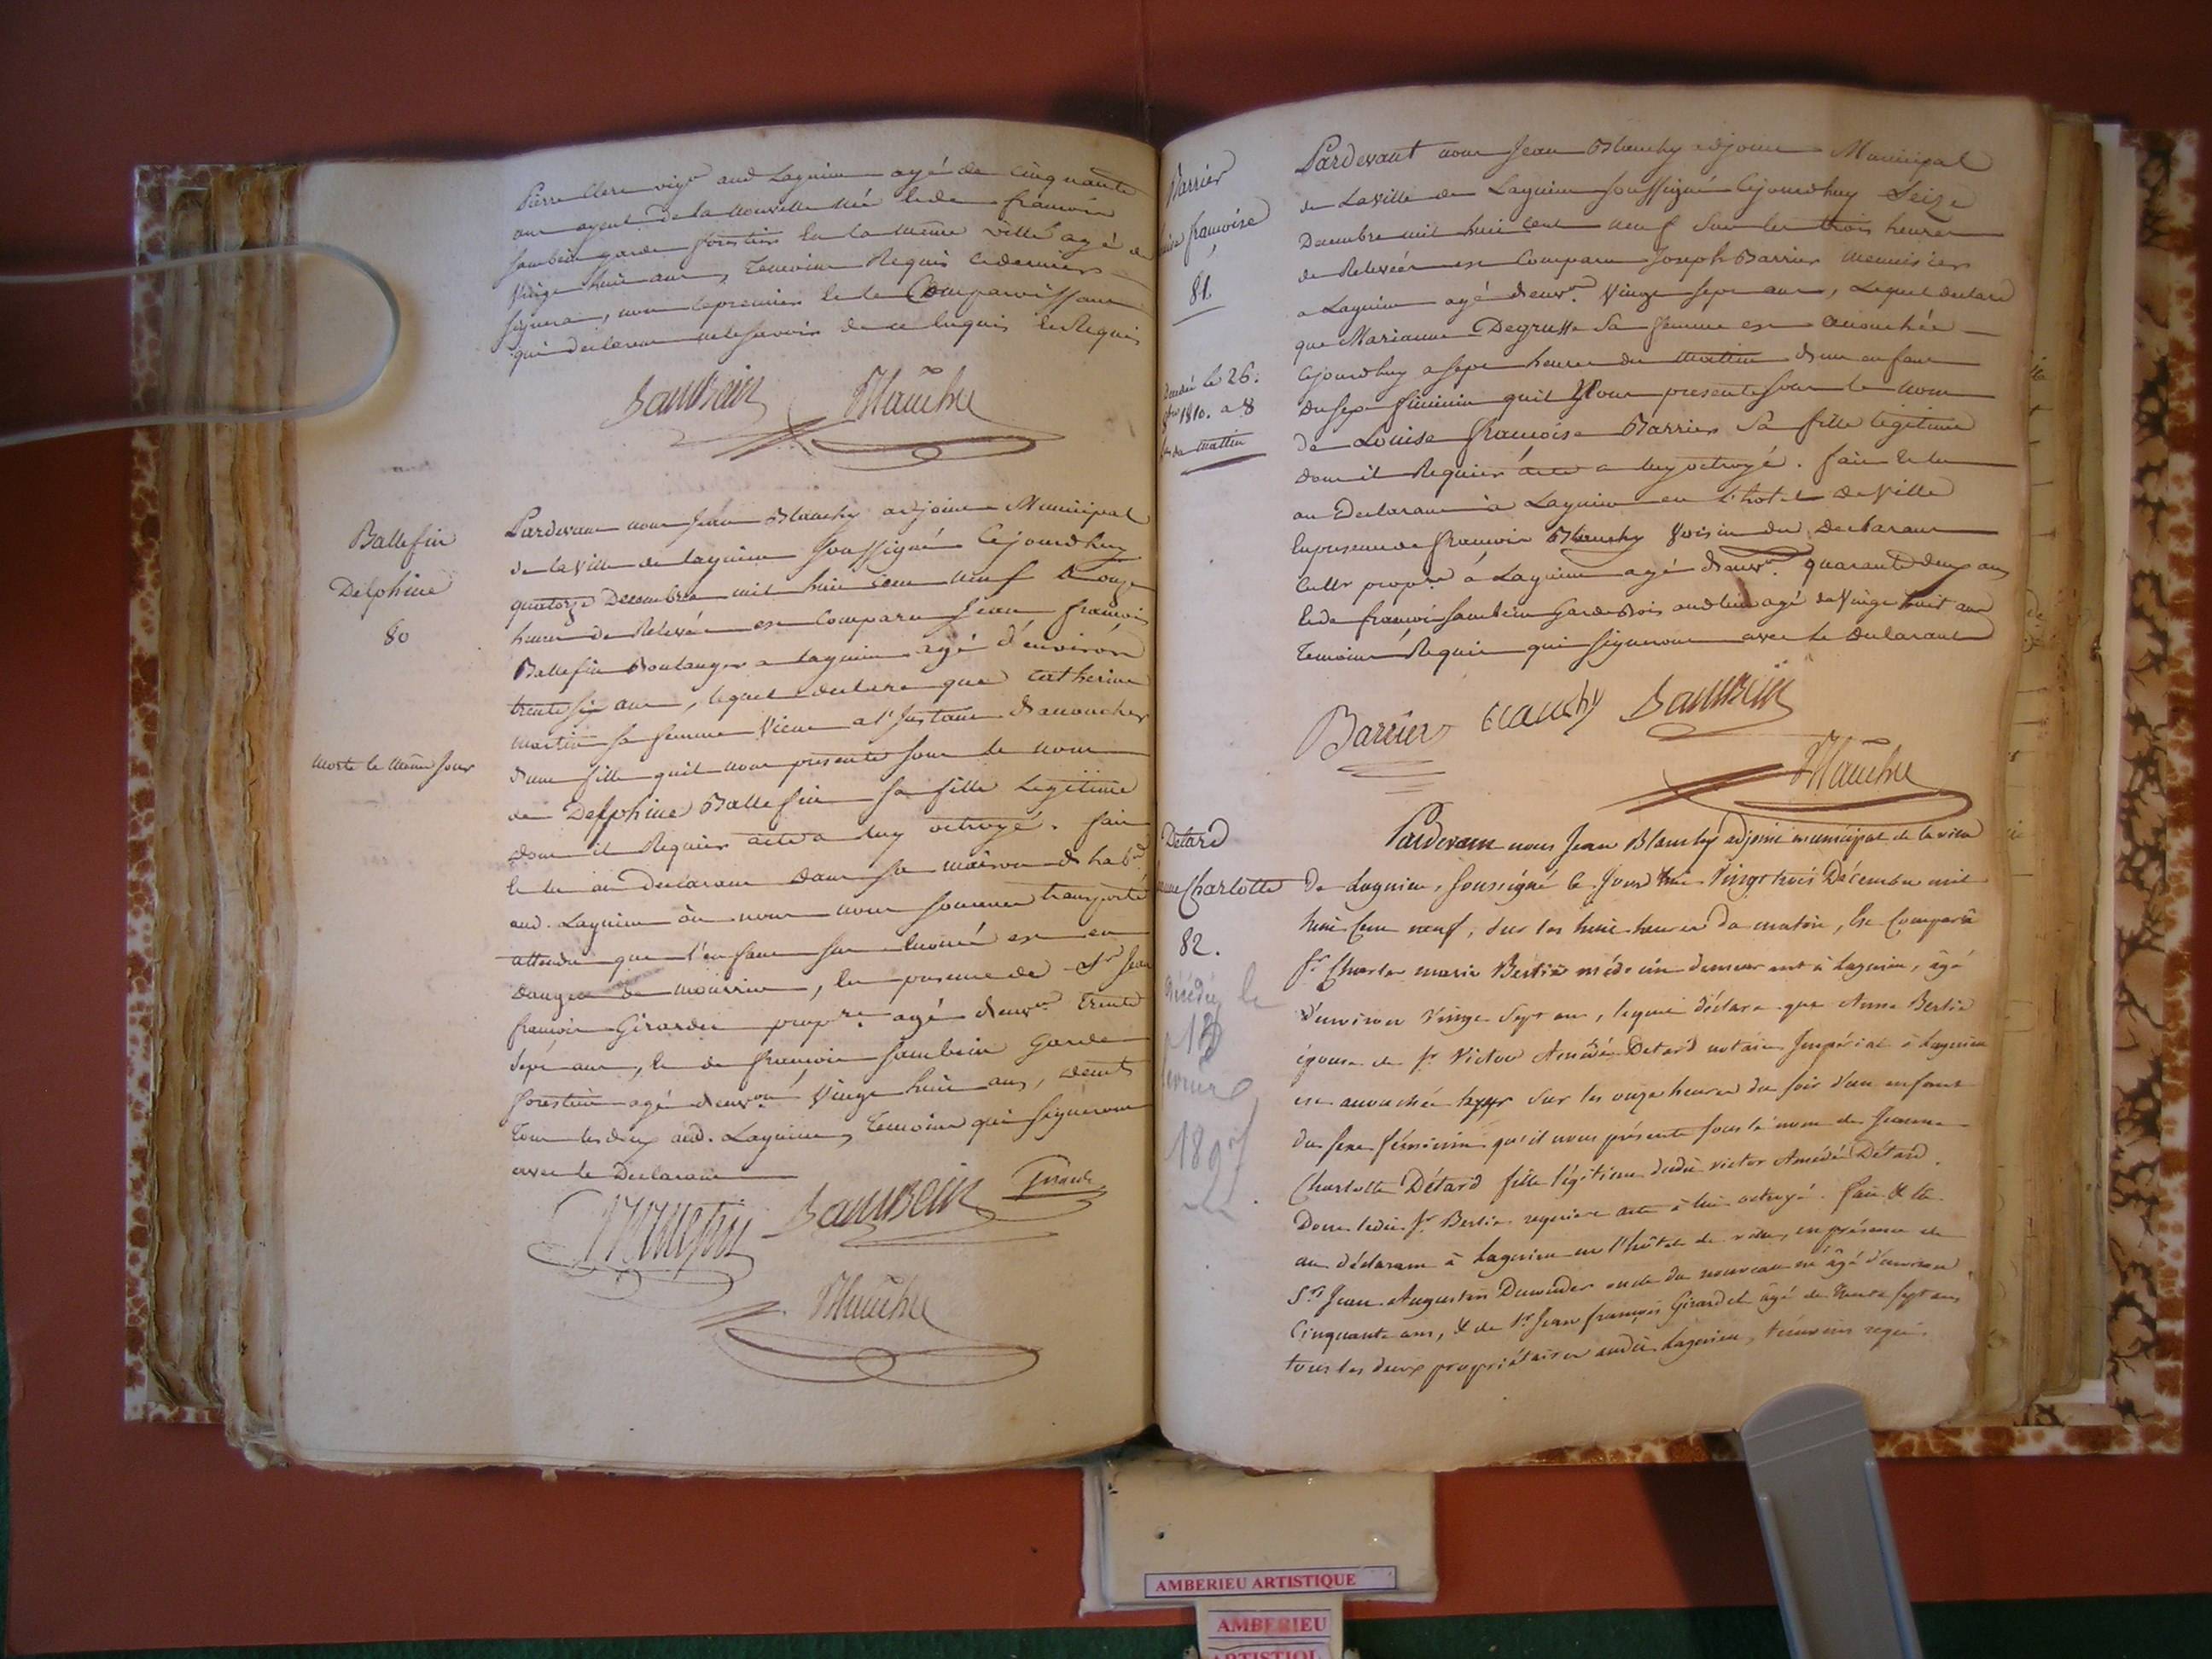 Pierre Clere vigr aud Lagnieu agé de cinquante
ans ayeul de la nouvelle née et de françois
Sambein garde forestier en la même ville agé de
vingt huit ans, temoins Requis ce dernier
signera, non le premier et le Comparoissant
qui declarent ne le savoir de ce enquis et Requis
Sambein Blanchy
Ballefin
Delphine
80
morte le même jour
Pardevant nous Jean Blanchy adjoint Municipal
de la ville de Lagnieu soussigné Cejourdhuy
quatorze Decembre mil huit cent neuf a onze
heures de Relevée est Comparu Jean françois
Ballefin Boulanger a Lagnieu agé d'environ
trente six ans, lequel declare que Catherine
Martin sa femme vient a l'Instant d'accoucher
d'une fille quil nous presente sous le nom
de Delphine Ballefin sa fille Legitime
dont il Requier acte a luy octroyé. fait
et lu au Declarant dans sa maison d'habon
aud. Lagnieu où nous nous sommes transporté
attendu que l'enfant sus enoncé est en
danger de mourrir, en presence de Sr Jean
françois Girardet propre agé d'envn trente
sept ans, et de françois Sambein Garde
forestier agé d'environ vingt huit ans, demts
tous les deux aud. Lagnieu, temoins qui signeront
avec le Declarant
Sambein Girardet
Blanchy
Barrier
françoise
81
le 26.
1810. a 8
du mattin
Pardevant nous Jean Blanchy adjoint Municipal
de La ville de Lagnieu soussigné Cejourdhuy Seize
Decembre mil huit cent neuf sur les trois heures
de Relevée est Comparu Joseph Barrier menuisier
a Lagnieu agé d'envn vingt sept ans, Lequel declare
que Marianne Degrusse sa femme est accouchée
Cejourdhuy a sept heures du mattin d'un enfant
du sexe feminin quil Nous presente sous le nom
de Louise françoise Barrier sa fille legitime
dont il Requier acte a luy octroyé. fait et lu
au Declarant à Lagnieu en l'hotel de ville
en presence de françois Blanchy voisin du Declarant
Cultr propre à Lagnieu agé d'envn quarante deux ans
et de françois Sambein Garde Bois audt lieu agé de vingt huit ans
temoins Requis qui signeront avec le Declarant
Barrier Blanchy Sambein
Blanchy
Détard
Charlotte
82.
décédée le
18
1897
Pardevant nous Jean Blanchy adjoint municipal de la ville
de Lagnieu, soussigné le jour vingt trois Décembre mil
huit cent neuf, sur les huit heures du matin, Est Comparu
Sr Charles marie Bertié médecin demeurant à Lagnieu, âgé
d'environ vingt sept ans, lequel déclare que Anne Bertié
épouse de Sr Victor Amédée Détard notaire Impérial à Lagnieu
est accouchée hyer sur les onze heures du soir d'un enfant
du sexe féminin qu'il nous présente sous le nom de Jeanne
Charlotte Détard fille légitime dudit victor Amédée Détard.
Dont ledit Sr Bertié requiert acte à lui octroyé. fait & lu
au déclarant à Lagnieu en l'hôtel de ville, en présence de
Sr Jean Augustin oncle du nouveau né âgé d'environ
Cinquante ans, & de Sr Jean françois Girardet âgé de trente sept ans
tous les deux propriétaires audit Lagnieu, témoins requis.
AMBERIEU ARTISTIQUE
AMBERIEU